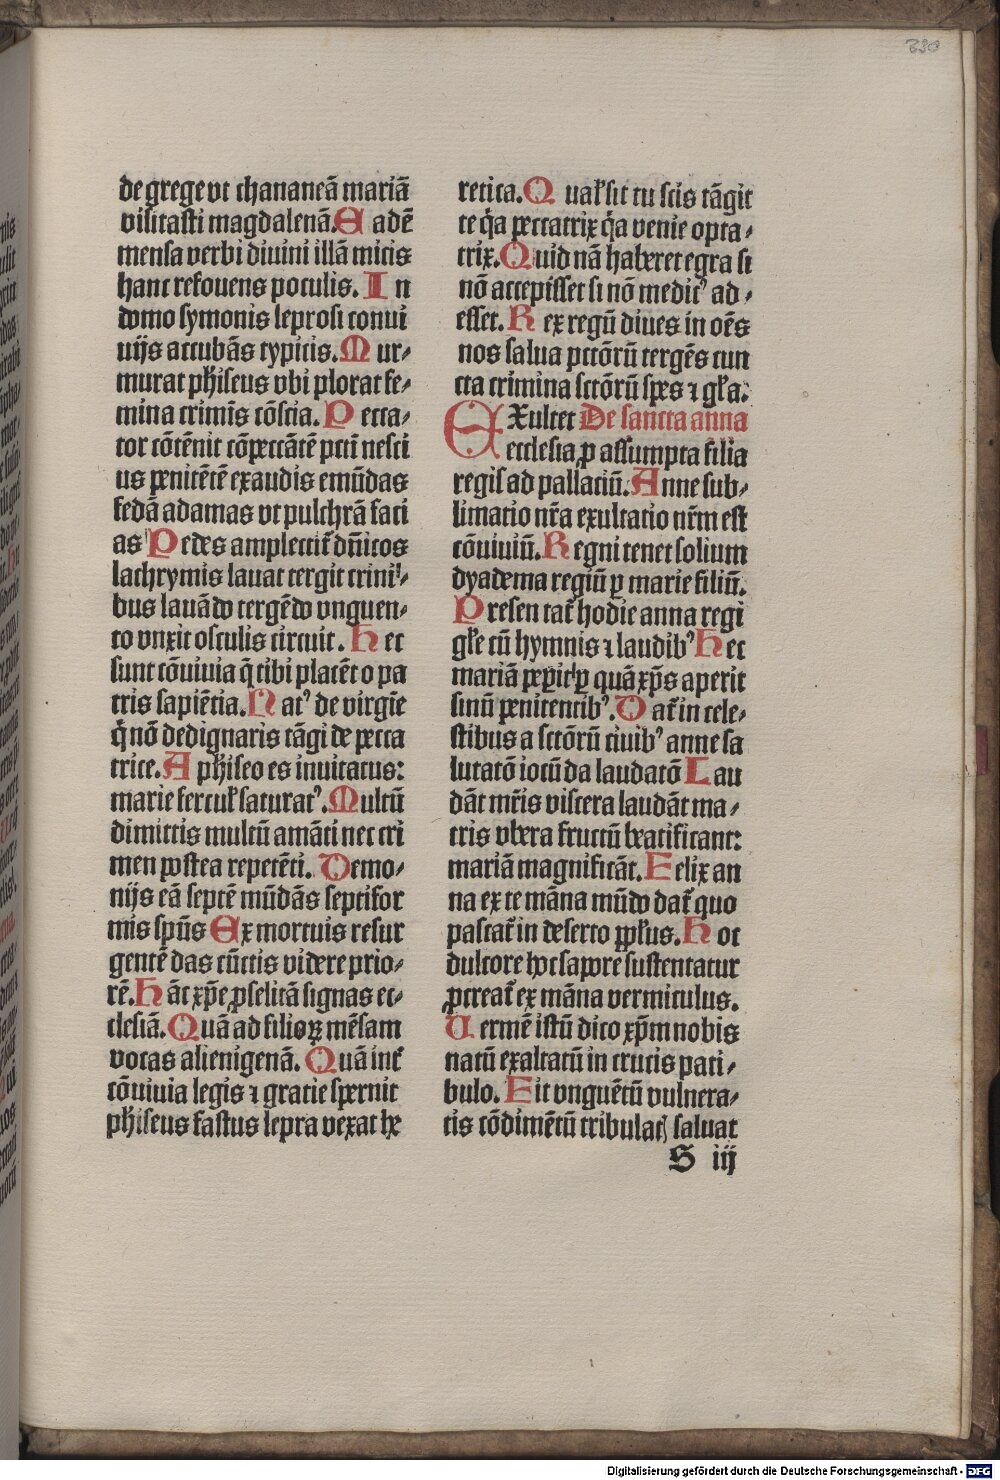 230
de grege vt chananeā mariā
visitasti magdalenā. E adē
mensa verbi diuini illā micis
hanc refouens poculis. In
domo symonis leprosi conui
uijs accubās typicis. Mur⸗
murat phiseus vbi plorat fe⸗
mina crimīs cōscia. Pecca⸗
tor cōtēnit cōpeccātē pcti nesci
us penitētē exaudis emūdas
fedā adamas vt pulchrā faci
as Pedes amplectit᷑ dn̄icos
lachrymis lauat tergit crini⸗
bus lauādo tergēdo vnguen⸗
to vnxit osculis circuit. Hec
sunt cōuiuia q̄ tibi placēt o pa
tris sapiētia. Natꝰ de virgīe
q̄ nō dedignaris tāgi de pecca
trice. A phiseo es inuitatus:
marie fercuł saturatꝰ. Multū
dimittis multū amāti nec cri
men postea repetēti. Demo⸗
nijs eā septē mūdās septifor
mis spūs Ex mortuis resur
gentē das cūctis videre prio⸗
rē. Hāc xp̄e ꝓselitā signas ec⸗
clesiā. Quā ad filioꝝ mēsam
vocas alienigenā. Quā int᷑
cōuiuia legis ⁊ gratie spernit
phiseus fastus lepra vexat he
retica. Qualˀ sit tu scis tāgit
te q̄a peccatrix q̄a venie opta⸗
trix. Quid nā haberet egra si
nō accepisset si nō medicꝰ ad⸗
esset. Rex regū diues in oēs
nos salua pctōrū tergēs cun
cta crimina sctōrū spes ⁊ gła.
EXultet De sancta anna
ecclesia ꝓ assumpta filia
regis ad pallaciū. Anne sub⸗
limatio nr̄a exultatio nr̄m est
cōuiuiū. Regni tenet solium
dyadema regiū ꝑ marie filiū.
Presentat᷑ hodie anna regi
głe cū hymnis ⁊ laudibꝰ Hec
mariā peꝑit quā xp̄s aperit
sinū penitencibꝰ. Dat᷑ in cele⸗
stibus a sctōrū ciuibꝰ anne sa
lutatō iocūda laudatō Lau
dāt mr̄is viscera laudāt ma⸗
tris vbera fructū beatificant:
mariā magnificāt. Felix an
na ex te māna mūdo dat᷑ quo
pascat᷑ in deserto ppłus. Hoc
dulcore hoc sapore sustentatur
ꝓcreat᷑ ex māna vermiculus.
Vermē istū dico xp̄m nobis
natū exaltatū in crucis pati⸗
bulo. Fit vnguētū vulnera⸗
tis cōdimētū tribulatꝭ saluat
S iij
Digitalisierung gefördert durch die Deutsche Forschungsgemeinschaft - DFG